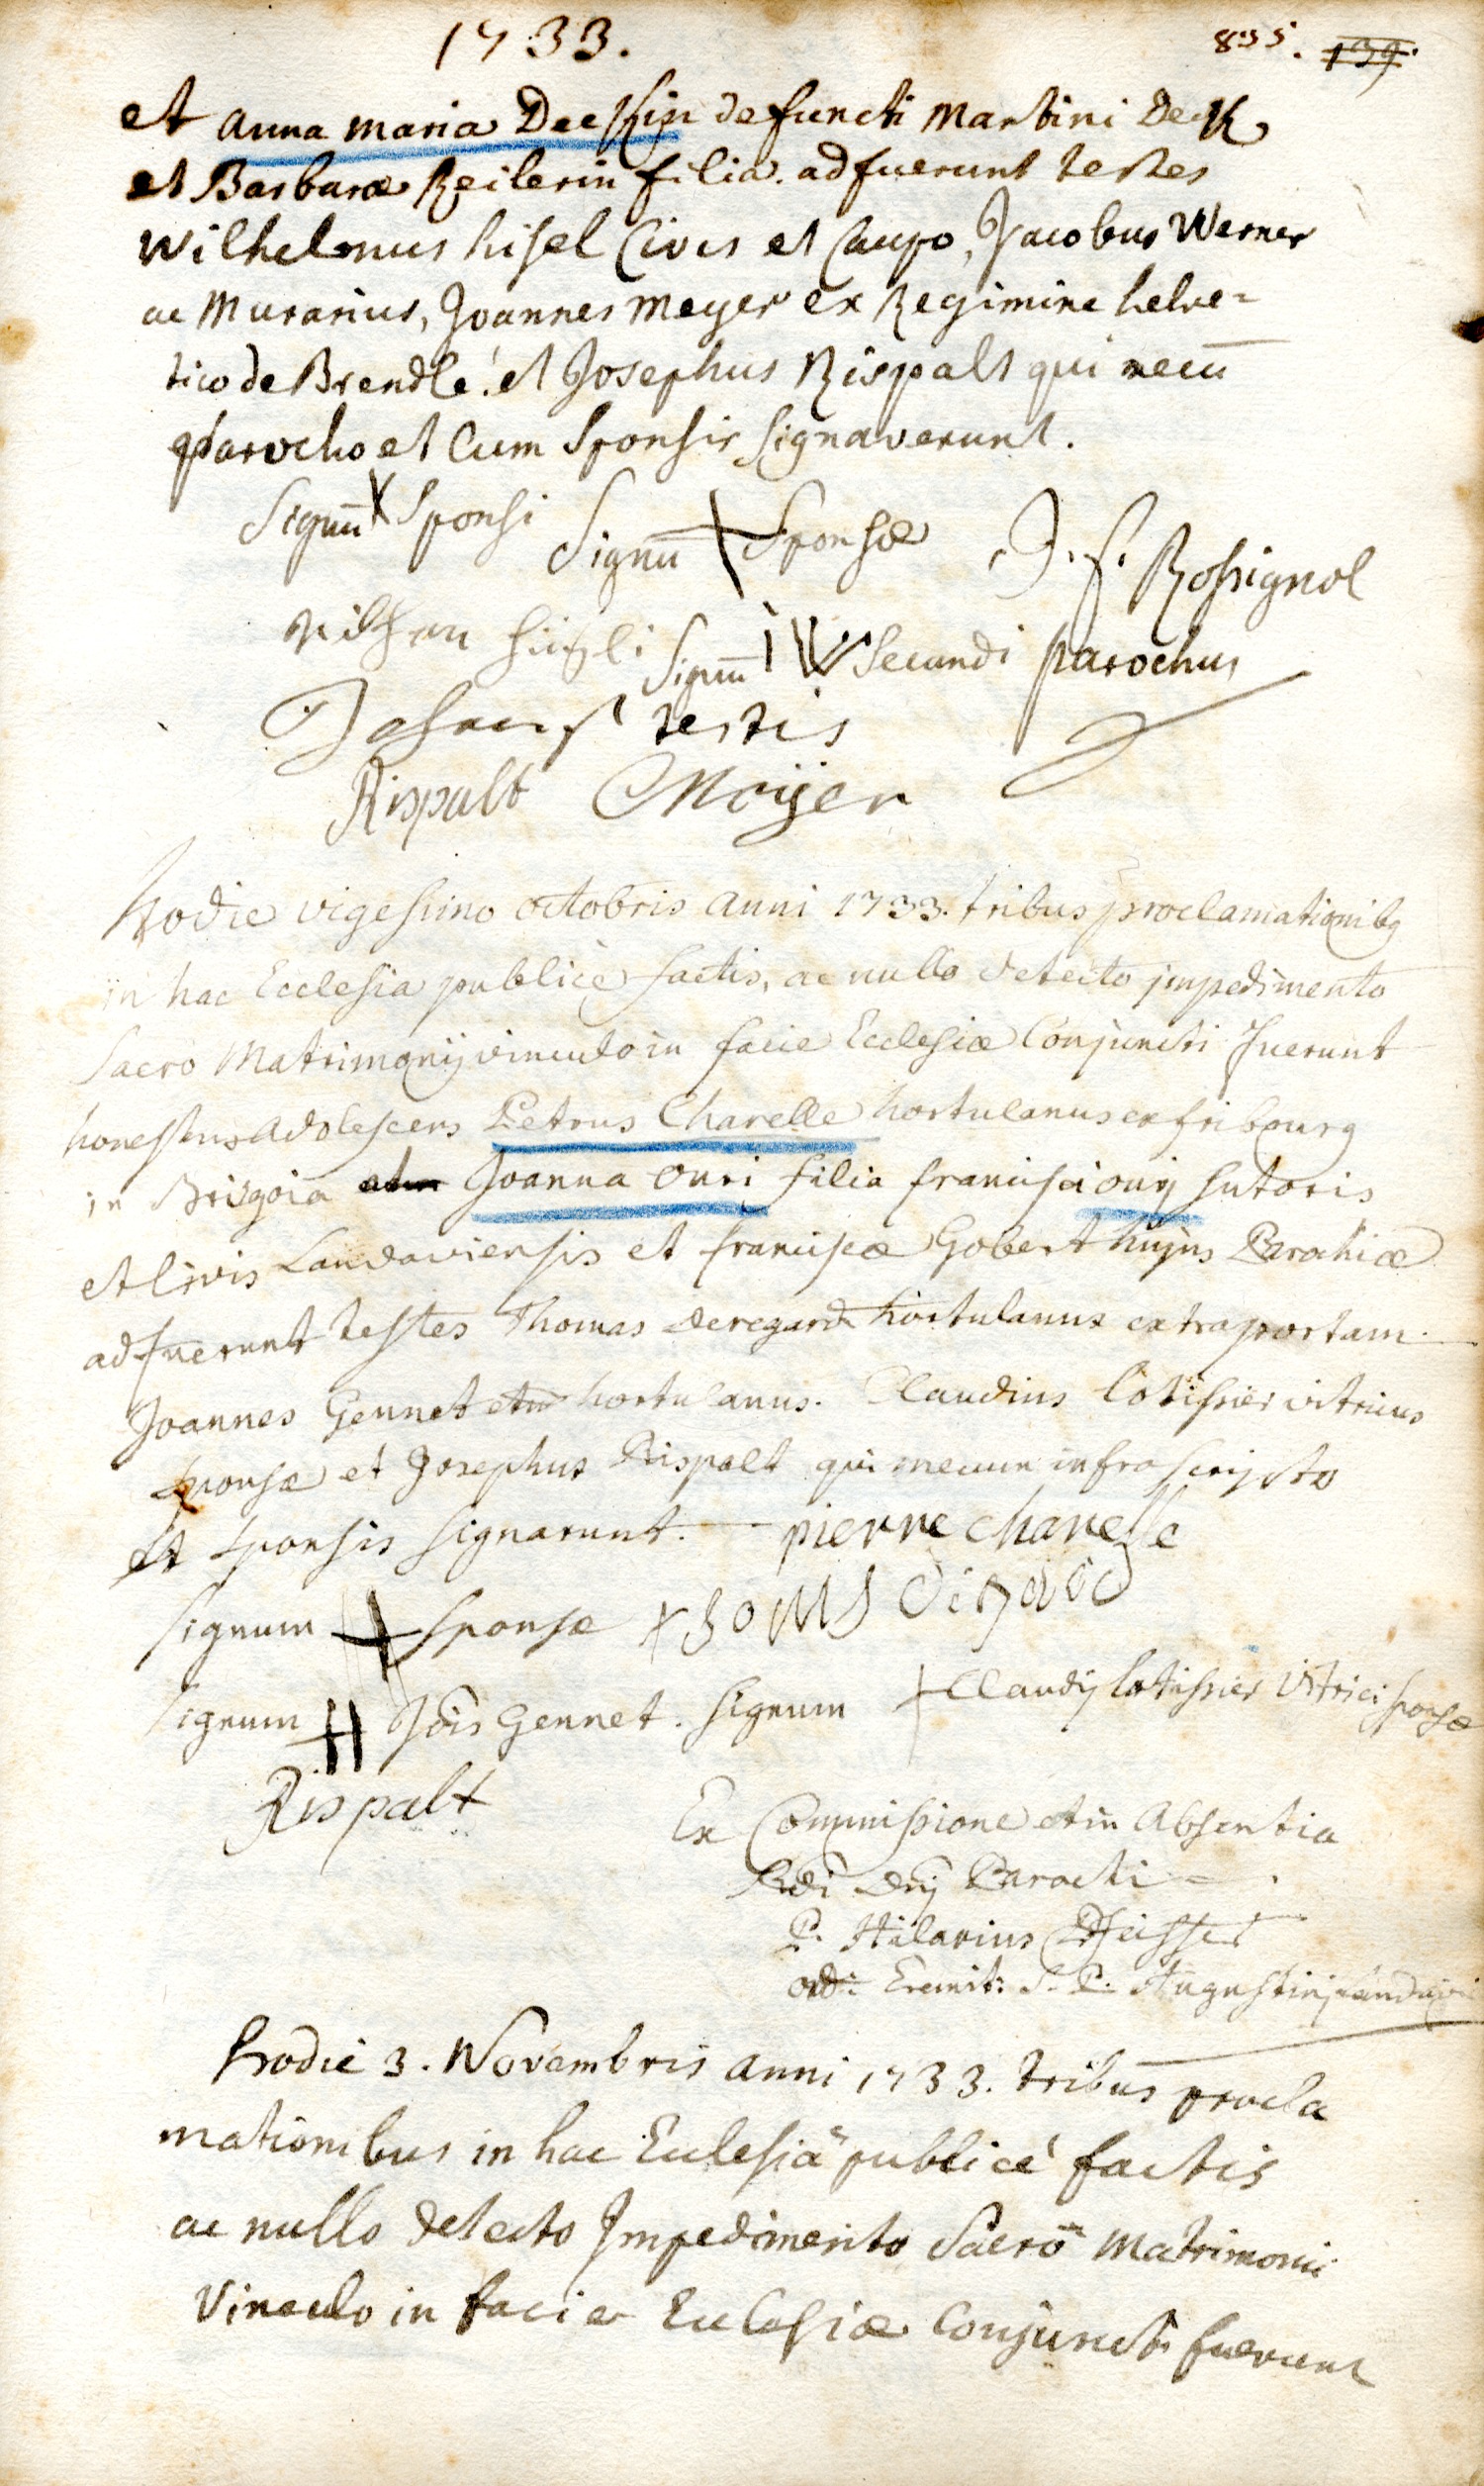 1733.
835. 139.
et anna maria Deckin defuncti Martini Deck
et Barbaræ Reilerin filia. adfuerunt testes
Wilhelmus hisel Civis et Caupo, Jacobus Werner
ac Murarius, Joannes Meyer ex Regimine helve=
tico de Brendlé. et Josephus Rispalt qui mecū
parocho et Cum Sponsis signaverunt.
Signū Sponsi Signū Sponsæ J. f. Rossignol
Signū W Secundi parochus
testis
Rispalt Meijer
Hodie vigesimo octobris anni 1733. tribus proclamationibq
in hac Ecclesia publicè factis, ac nullo detecto impedimento
Sacro Matrimonij vinculo in facie Ecclesiæ Conjuncti fuerunt
honestus adolescens Petrus Charelle hortulanus ex fribourg
in Brisgoia Joanna Ouri filia francisci ourij sutoris
et Civis Landaviensis et franciscæ Gobert hujus Parochiæ
adfuerunt testes Thomas deregard hortulanus extra portam
Joannes Gennet hortulanus. Claudius Cotissier vitricus
sponsæ et Josephus Rispalt qui mecum infrascripto
et sponsis signarunt. pierre charelle
signum sponsæ
signum H Jois Gennet. signum Claudij Cotissier Vitrici sponsæ
Rispalt
Ex Commissione et in Absentia
Rdi Dnj Parochi
P. Hilarius
ord: Eremit: S. P. Augustinj Landavii
Hodie 3. Novembris anni 1733. tribus procla
mationibus in hac Ecclesiâ publicé factis
ac nullo detecto Impedimento Sacro Matrimonii
Vinculo in facie Ecclesiæ Conjuncti fuerunt